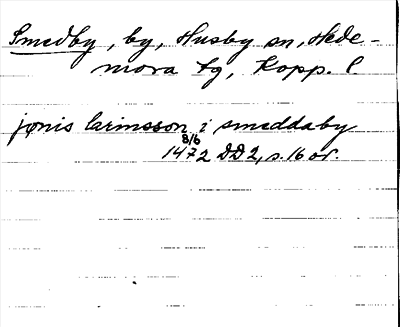 Smedby, by, Husby sn, Hede-
mora tg, Kopp. l.
jønis larinsson i smeddaby
8/6
1472 DD2, s. 16 or.